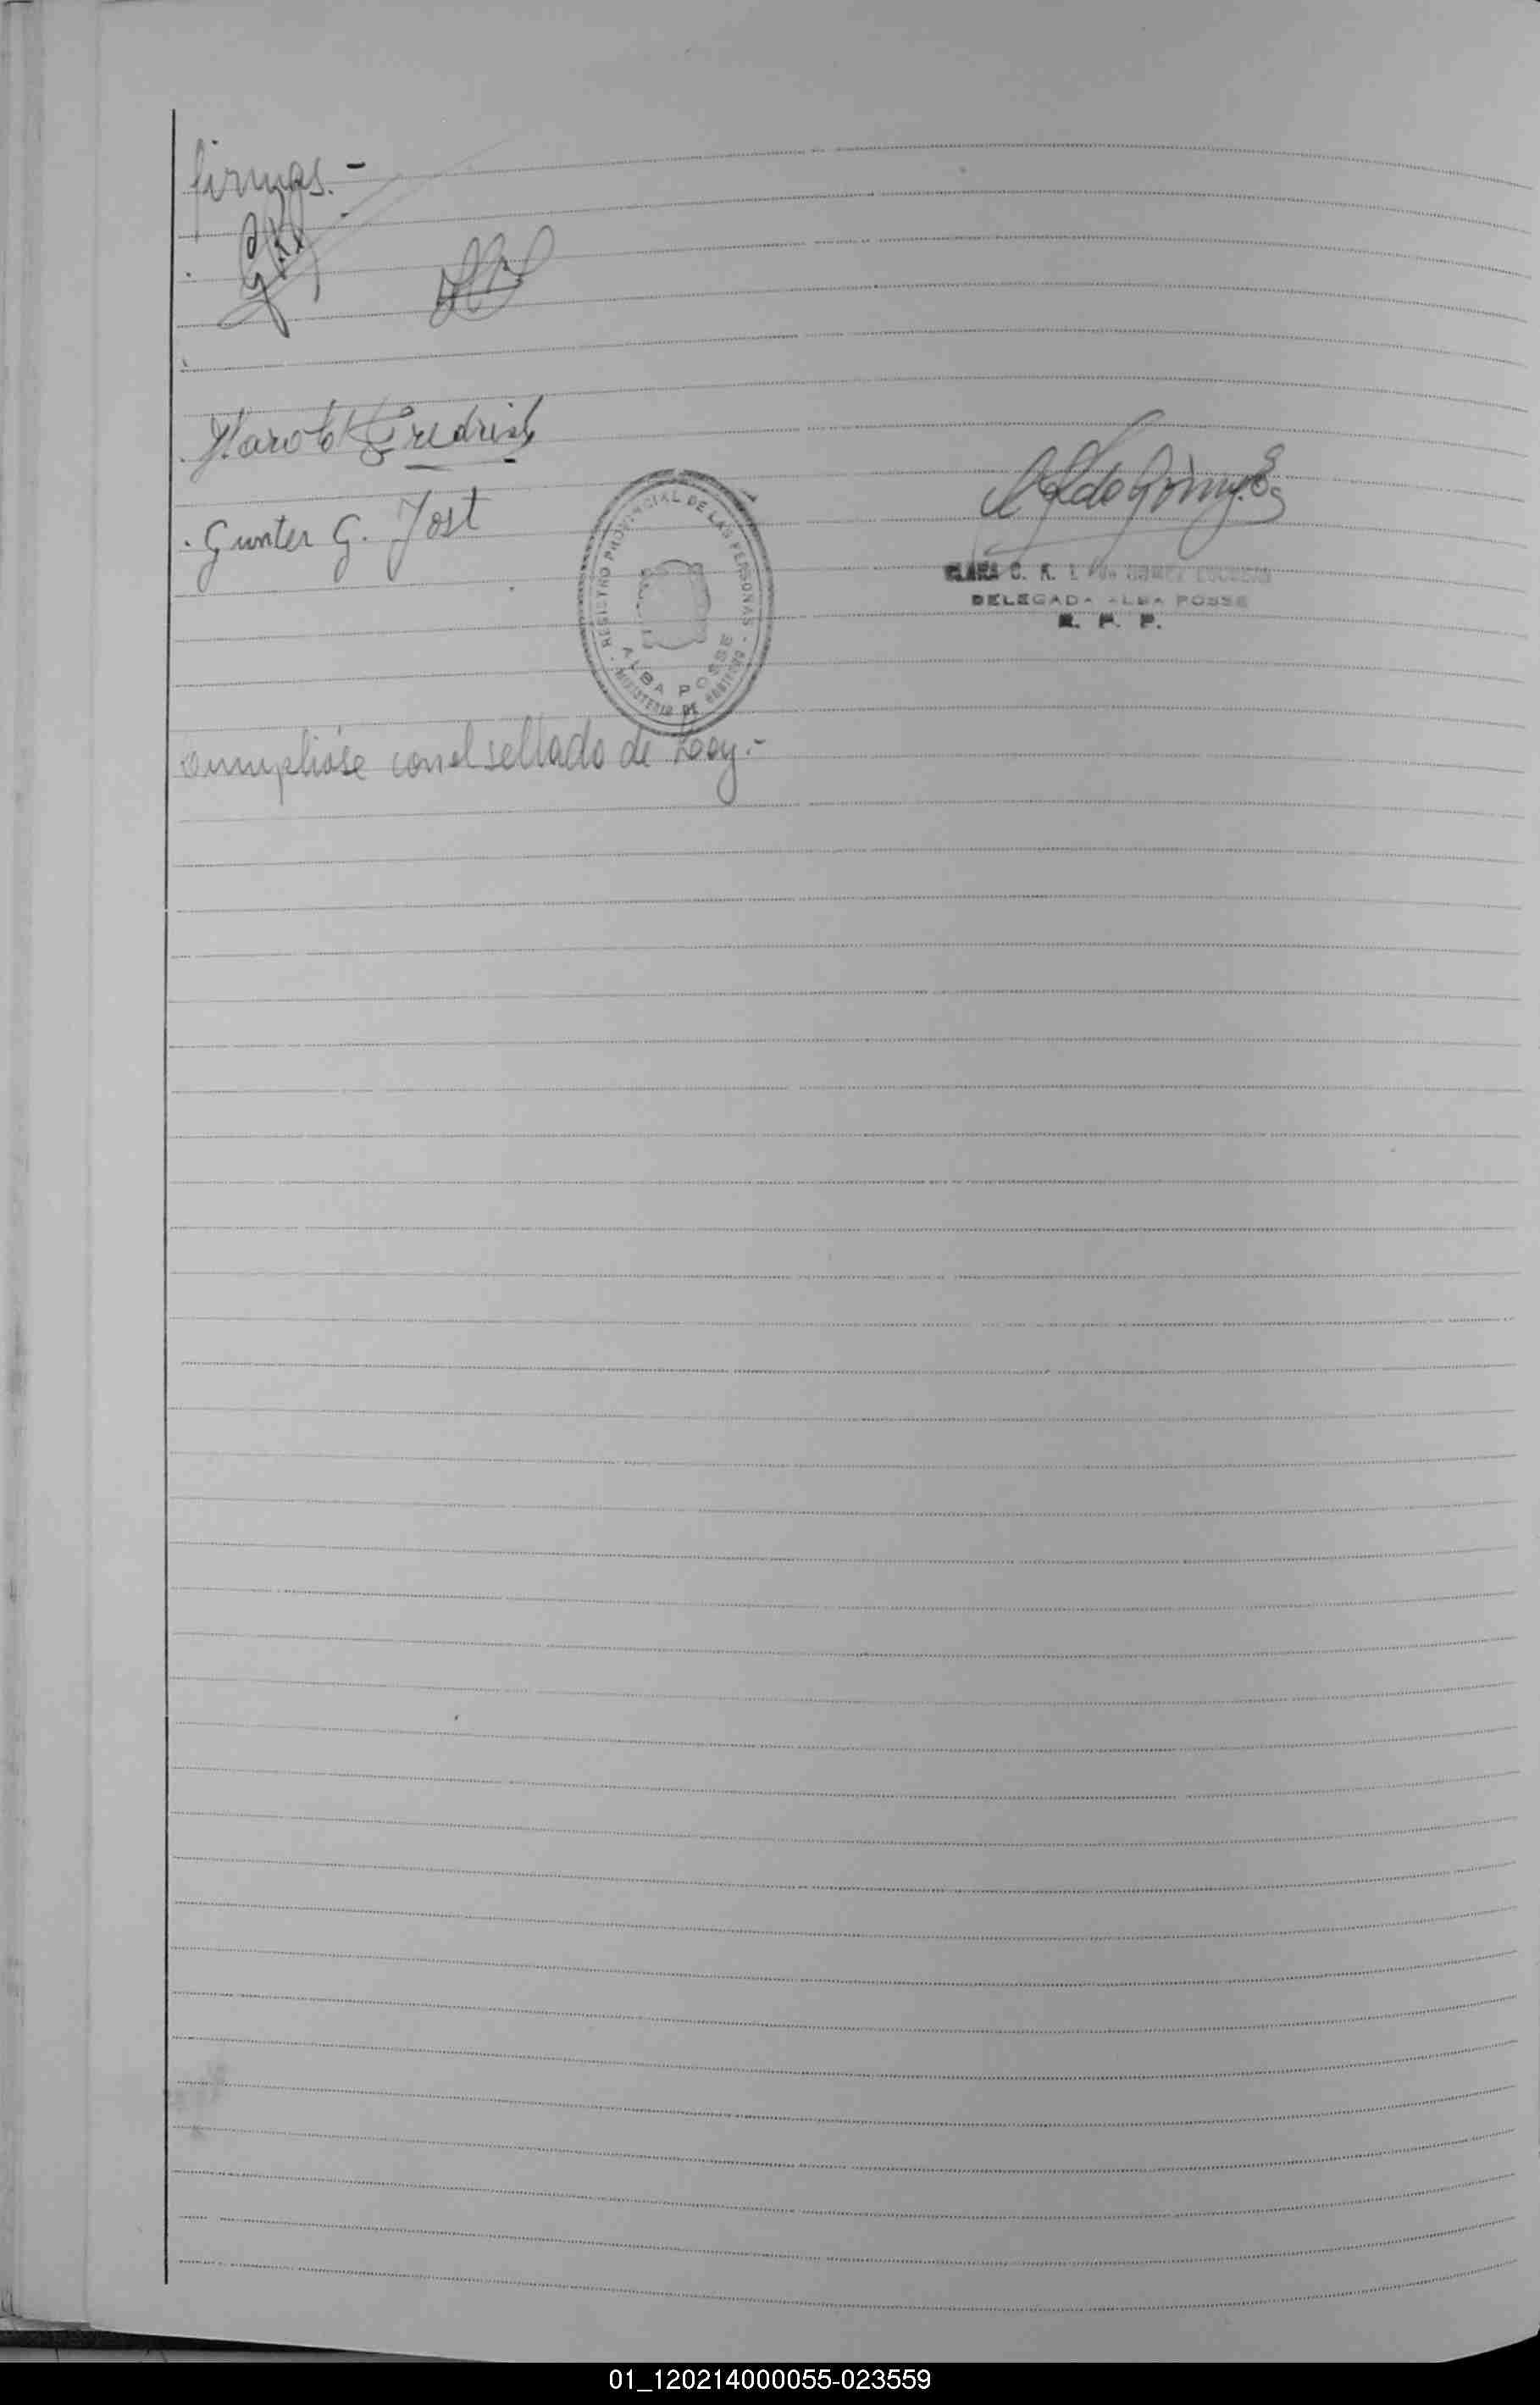 firmas.-
Harold Fredrich
Gunter G. Jost
REGISTRO PROVINCIAL DE LAS PERSONAS
ALBA POSSE
MINISTERIO DE GOBIERNO
CLARA C. R. L. DE GOMEZ
DELEGADA ALBA POSSE
R. P. P.
Cumplióse con el sellado de Ley.-
01_120214000055-023559